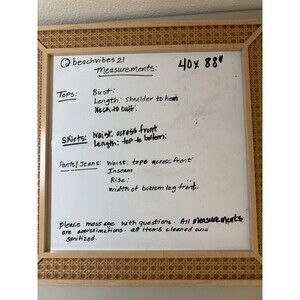 @beachvibes21
Measurements:
40 x 88"
Tops: Bust:
Length: Shoulder to hem
Neck to cuff.
Skirts: Waist across front
Length: top to bottom.
Pants/Jeans: Waist: tape across front
Inseam
Rise:
Width of bottom leg front.
Please message with questions. All measurements
are approximations. All items cleaned and
sanitized.